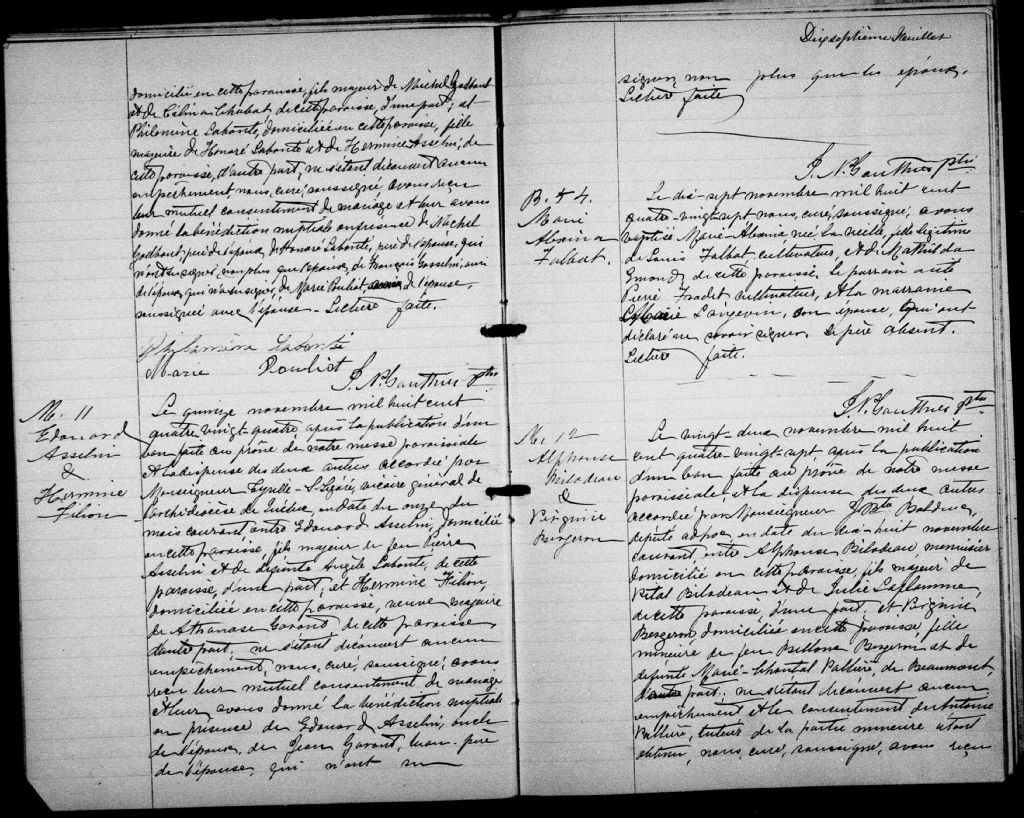 domiciliée en cette paroisse, fils majeur de Michel Godbout
et de Célina Chabot, de cette paroisse, d'une part; et
Philomène Labonté, domiciliée en cette paroisse, fille
majeure de Honoré Labonté et de Hermine Asselin, de
cette paroisse, d'autre part, ne s'étant découvert aucun
empêchement, nous, curé, soussigné avons reçu
leur mutuel consentement de mariage et leur avons
donné la bénédiction nuptiale en présence de Michel
Godbout, père de l'époux, de Honoré Labonté, père de l'épouse, qui
n'ont su signer, non plus que l'époux, de François Gosselin, ami
de l'époux, qui n'a su signer, de Marie Pouliot, de l'épouse,
soussignée avec l'épouse. Lecture faite.
Philomène Labonté
Marie Pouliot
J. N. Gauthier Ptre
M. 11
Edouard
Asselin
&
Hermine
Filion
Le quinze novembre mil huit cent
quatre vingt-quatre après la publication d'un
ban faite au prône de notre messe paroissiale
et la dispense des deux autres accordée par
Monseigneur Cyrille Légaré, vicaire général de
l'archidiocèse de Québec, en date du onze du
mois courant entre Edouard Asselin, domicilié
en cette paroisse, fils majeur de feu Pierre
Asselin et de Labonté, de cette
paroisse, d'une part, et Hermine Filion,
domiciliée en cette paroisse, veuve majeure
de Athanase Gavant de cette paroisse,
d'autre part, ne s'étant découvert aucun
empêchement, nous, curé, soussigné, avons
reçu leur mutuel consentement de mariage
et leur avons donné la bénédiction nuptiale
en présence de Edouard Asselin, oncle
de l'époux, de Jean Gavant, beau-père
de l'épouse, qui n'ont su
Dixseptième Feuillet
signer, non plus que les époux.
Lecture faite
J. N. Gauthier Ptre
B. 54.
Marie
Alexina
Talbot.
Le dix-sept novembre mil huit cent
quatre-vingt-sept nous, curé, soussigné, avons
baptisé Marie-Alexina née la veille, fille légitime
de Louis Talbot, cultivateur, et de Mathilda
Emond, de cette paroisse. Le parrain a été
Pierre Fradet, cultivateur, et la marraine
Langevin, son épouse, qui ont
déclaré ne savoir signer. Le père absent.
Lecture faite.
J. N. Gauthier Ptre
M. 12
Alphonse
Bilodeau
&
Virginie
Bergeron
Le vingt-deux novembre mil huit
cent quatre-vingt-sept, après la publication
d'un ban faite au prône de notre messe
paroissiale, et la dispense des deux autres
accordée par Monseigneur Bte Bolduc,
député ad hoc, en date du dix-huit novembre
courant, entre Alphonse Bilodeau, menuisier
domicilié en cette paroisse, fils majeur de
Vital Bilodeau et de Julie Laflamme
de cette paroisse, d'une part, et Virginie
Bergeron, domiciliée en cette paroisse, fille
mineure de feu Bergeron et de
défunte Marie-Chantal de Beaumont,
d'autre part, ne s'étant découvert aucun
empêchement et le consentement de Antoine
tuteur de la partie mineure étant
obtenu, nous, curé, soussigné, avons reçu